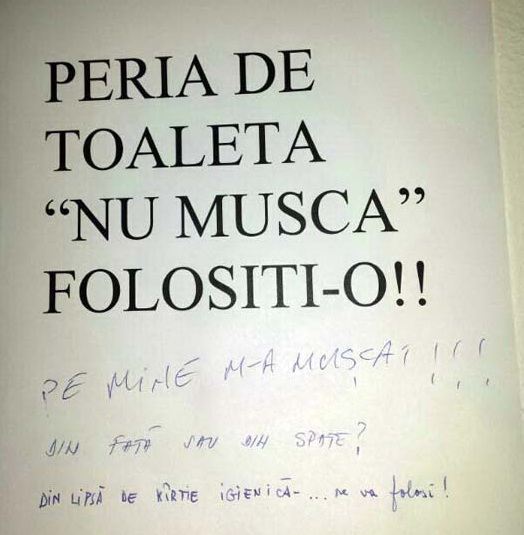 PERIA DE
TOALETA
“NU MUSCA”
FOLOSITI-O!!
PE MINE M-A MUȘCAT !!!
DIN FAȚĂ SAU DIN SPATE?
DIN LIPSĂ DE HÎRTIE IGIENICĂ-... se va folosi!